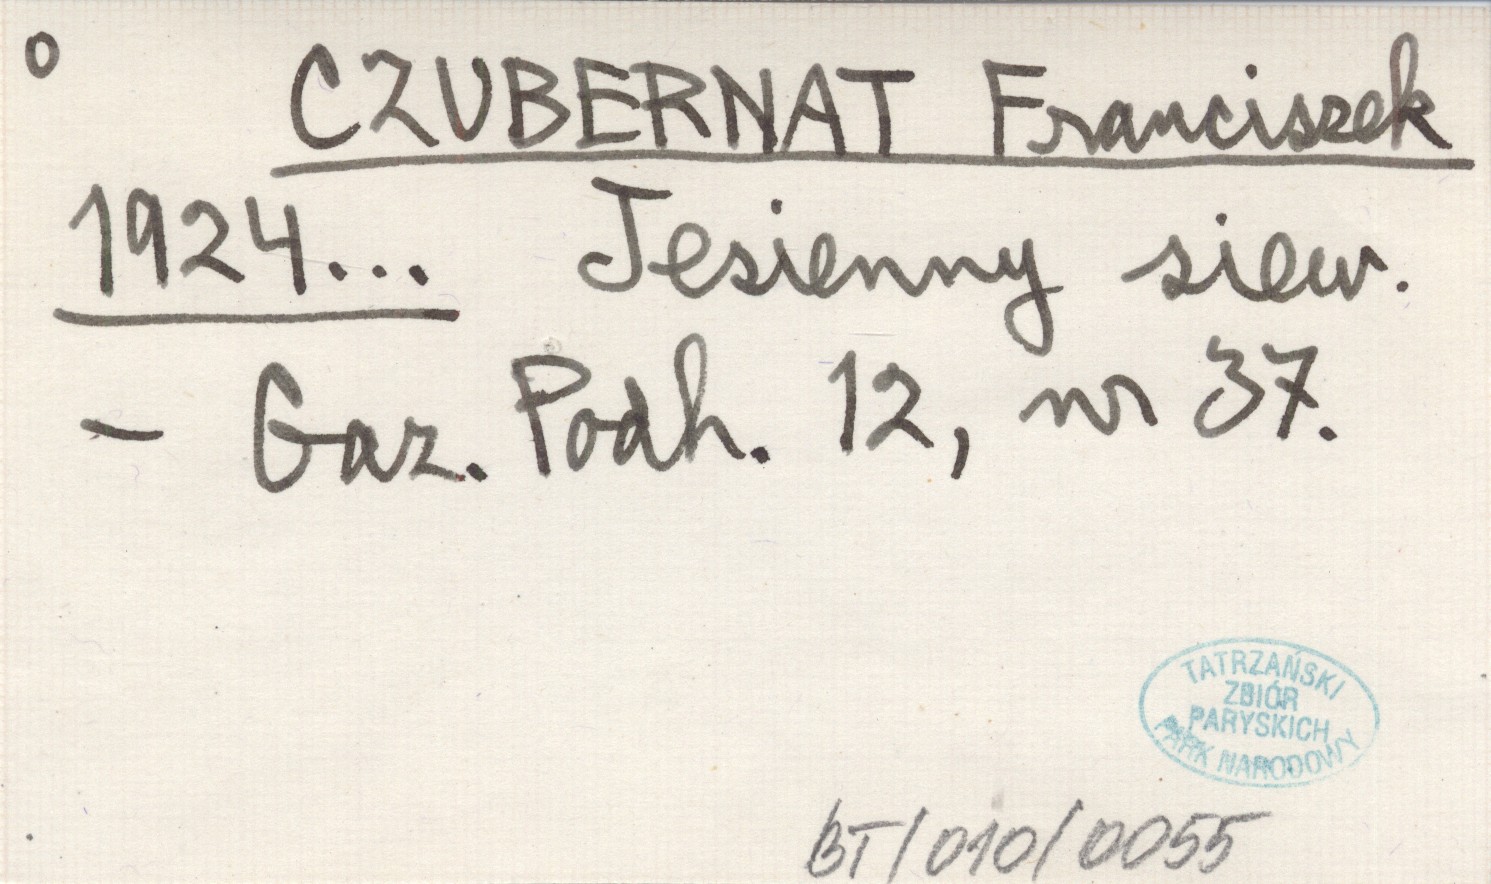 o CZUBERNAT Franciszek
1924... Jesienny siew.
- Gaz. Podh. 12, nr 37.
TATRZAŃSKI
ZBIÓR
PARYSKICH
PARK NARODOWY
BT/010/0055